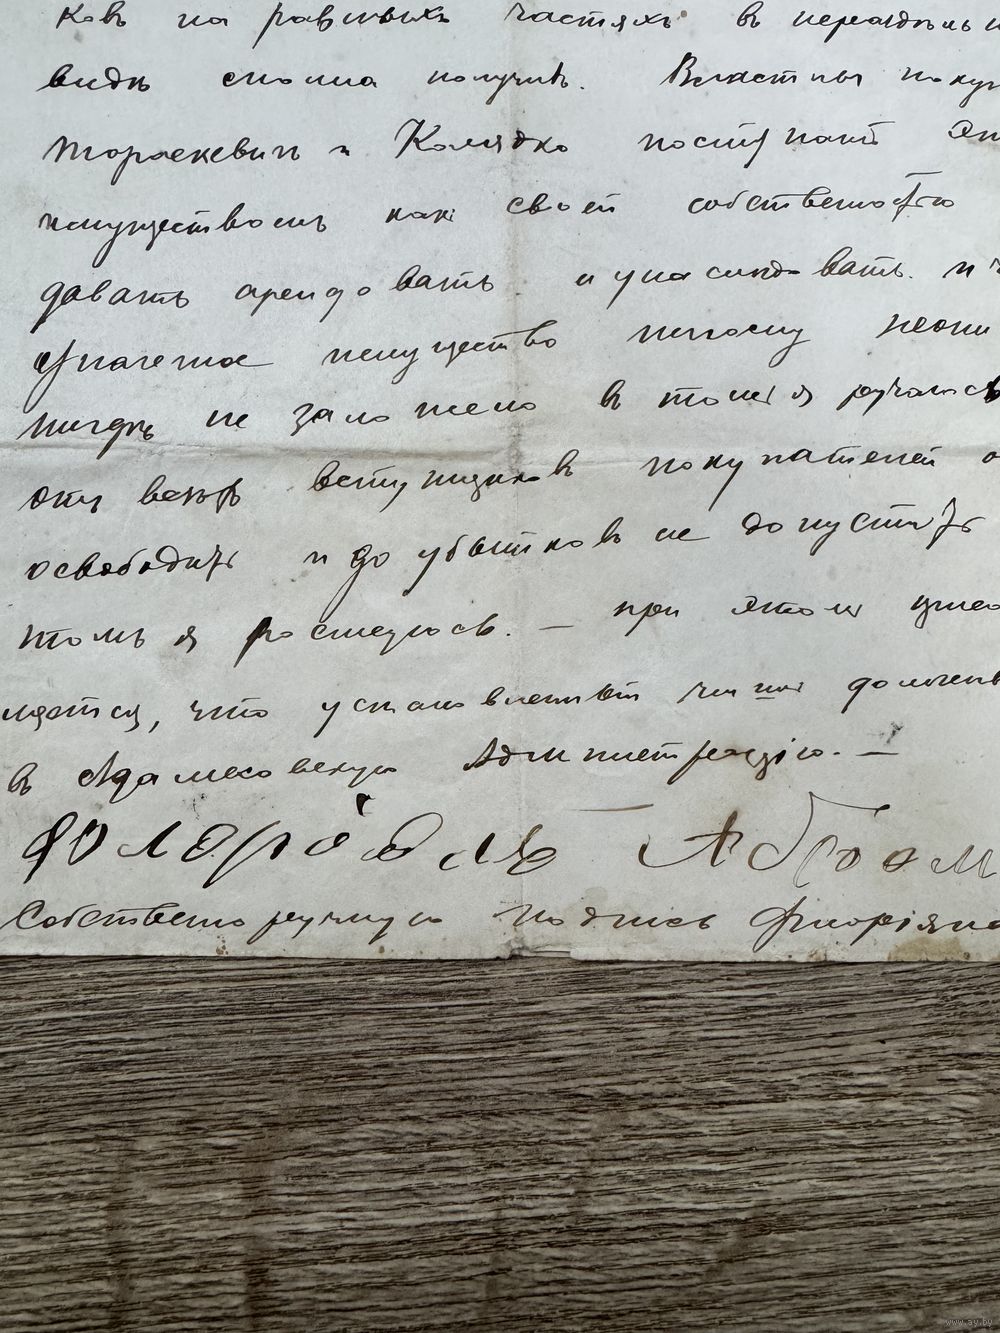 ковъ на равныхъ частяхъ въ нераздѣльн
видѣ сполна получилъ. Властны поку
и Колядко поступать
имуществомъ какъ своей собственостью
давать арендовать и унаслѣдовать. и
имущество никому
нигдѣ не заложено въ томъ я ручаюсь
отъ всѣхъ вступщиковъ покупателей о
освободить и до убытковъ не допустить
томъ я росписуюсь. — при этомъ
ляется, что установленный чиншъ
въ Адамковскую Администрацію. —
Флорёанъ Абрам
Собственоручную подпись Флоріяна
www.ay.by